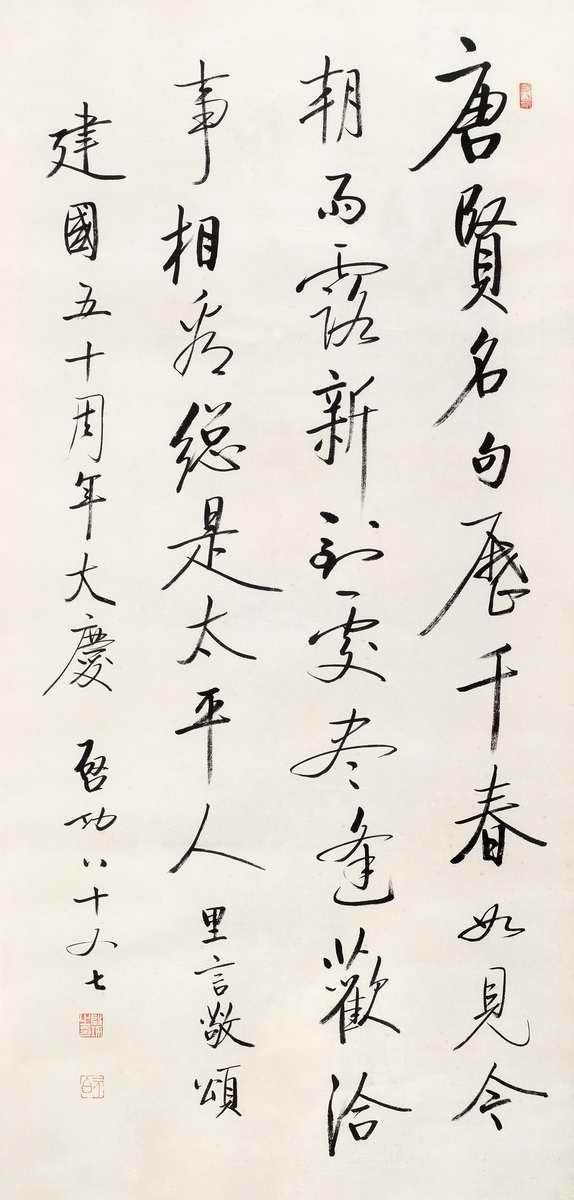 唐賢名句歷千春如見今
朝雨露新到處盡逢歡洽
事相看總是太平人 里言敬頌
建國五十周年大慶 啓功八十又七